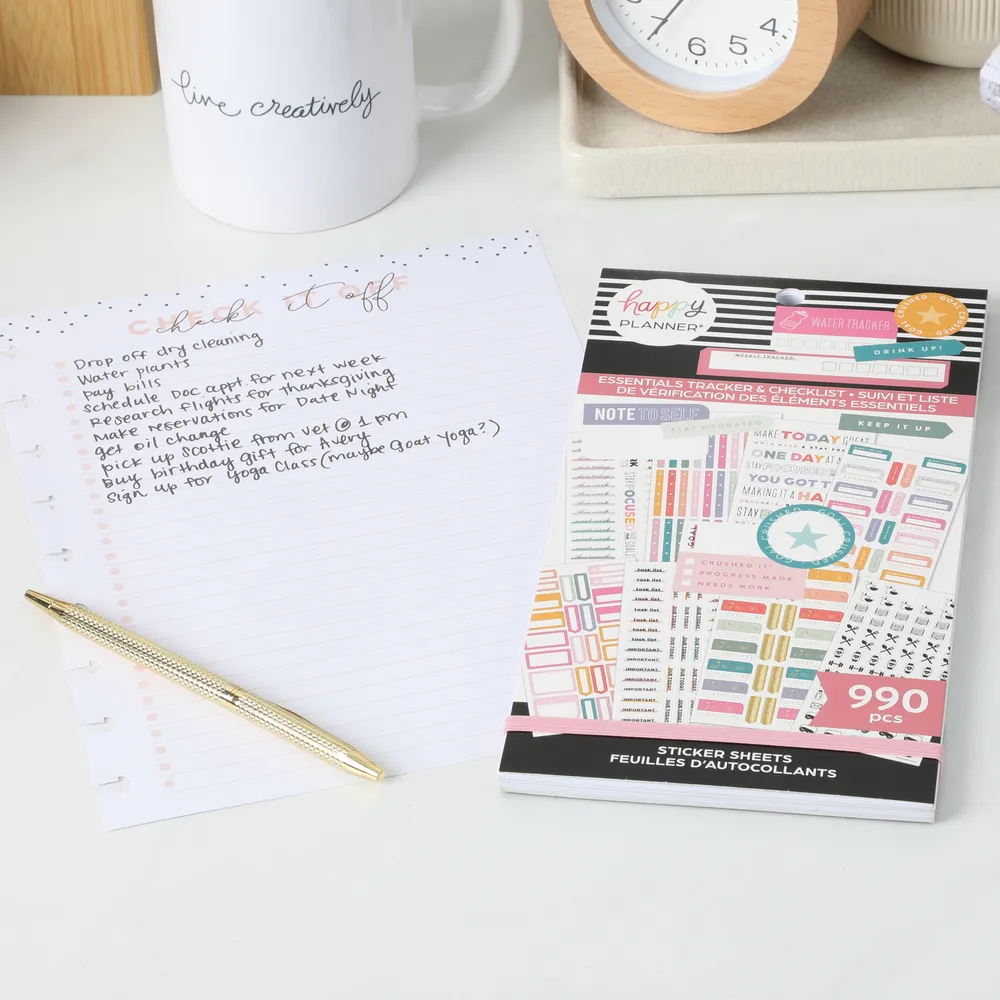 live creatively
6 5 4
CHECK IT OFF
check it off
Drop off dry cleaning
Water plants
pay bills
schedule Doc. appt. for next week
Research flights for thanksgiving
Make reservations for Date Night
get oil change
pick up Scottie from vet @ 1 pm
Buy birthday gift for Avery
Sign up for Yoga Class (maybe Goat Yoga?)
happy
PLANNER®
WATER TRACKER
GOAL CRUSHED • GOAL CRUSHED •
DRINK UP!
WEEKLY TRACKER:
ESSENTIALS TRACKER & CHECKLIST • SUIVI ET LISTE
DE VÉRIFICATION DES ÉLÉMENTS ESSENTIELS
NOTE TO SELF
STAY HYDRATED
KEEP IT UP
MAKE TODAY GREAT
ONE DAY AT A
STAY FOCUSED
YOU GOT T
MAKING IT A HA
STAY FOCUSED ON THE GOAL
GOAL CRUSHED
CRUSHED IT!
PROGRESS MADE
NEEDS WORK
task list
task list
task list
task list
task list
task list
task list
IMPORTANT
IMPORTANT
IMPORTANT
IMPORTANT
IMPORTANT
IMPORTANT
DUE TODAY
990
pcs
STICKER SHEETS
FEUILLES D'AUTOCOLLANTS